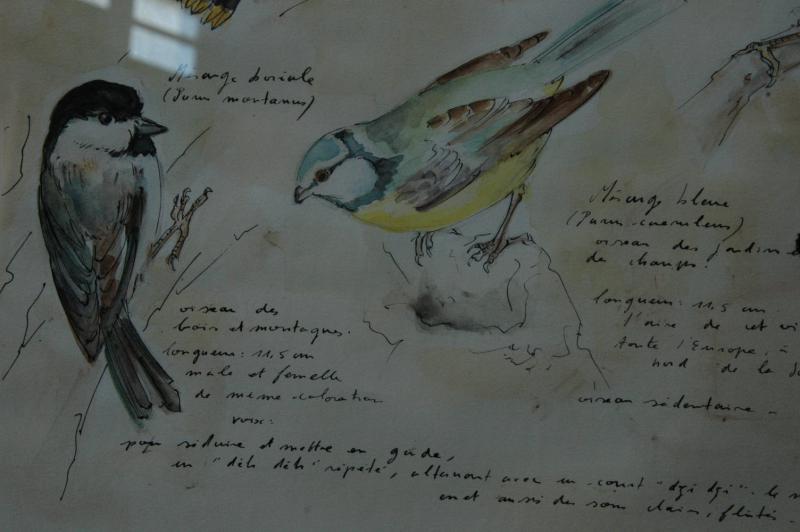 Mésange boréale
(Parus montanus)
oiseau des
bois et montagnes.
longueur: 11,5 cm
male et femelle
de même coloration
voix:
pour séduire et mettre en garde,
un "dèh dèh" répeté, alternant avec un court "dzi dzi". le
et aussi des sons clairs, flutés.
Mésange bleue
(Parus caeruleus)
oiseau des jardins
des champs.
longueur: 11,5 cm
l'aire de cet
toute l'Europe, à
nord de la
oiseau sédentaire -